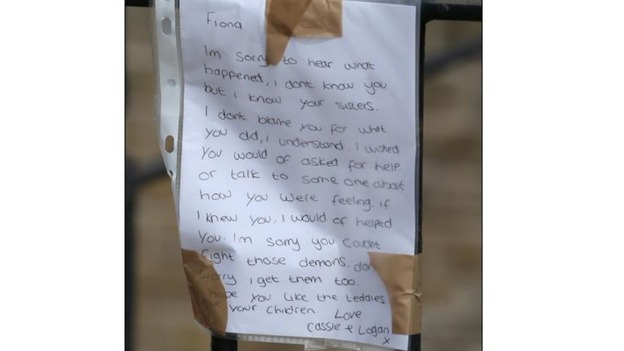 Fiona
I'm sorry to hear what
happened, I dont know you
but i know your sisters.
I dont blame you for what
you did, I understand I wished
you would of asked for help
or talk to some one about
how you were feeling. if
I knew you, I would of helped
you. I'm sorry you
fight those demons, don
worry i get them too.
hope you like the teddies
your children. Love
Cassie & Logan
x